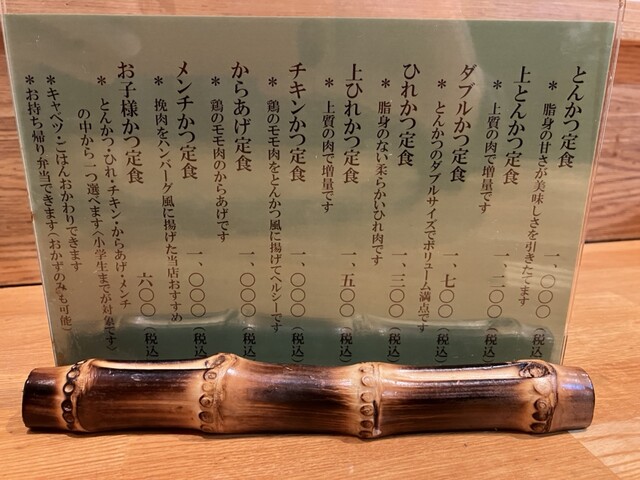 とんかつ定食 一、〇〇〇(税込)
* 脂身の甘さが美味しさを引きたてます
上とんかつ定食 一、二〇〇(税込)
* 上質の肉で増量です
ダブルかつ定食 一、七〇〇(税込)
* とんかつのダブルサイズでボリューム満点です
ひれかつ定食 一、三〇〇(税込)
* 脂身のない柔らかいひれ肉です
上ひれかつ定食 一、五〇〇(税込)
* 上質の肉で増量です
チキンかつ定食 一、〇〇〇(税込)
* 鶏のモモ肉をとんかつ風に揚げてヘルシーです
からあげ定食 一、〇〇〇(税込)
* 鶏のモモ肉のからあげです
メンチかつ定食 一、〇〇〇(税込)
* 挽肉をハンバーグ風に揚げた当店おすすめ
お子様かつ定食 六〇〇(税込)
* とんかつ・ひれ・チキン・からあげ・メンチ
の中から一つ選べます(小学生までが対象です)
* キャベツ・ごはんおかわりできます
* お持ち帰り弁当できます(おかずのみも可能)